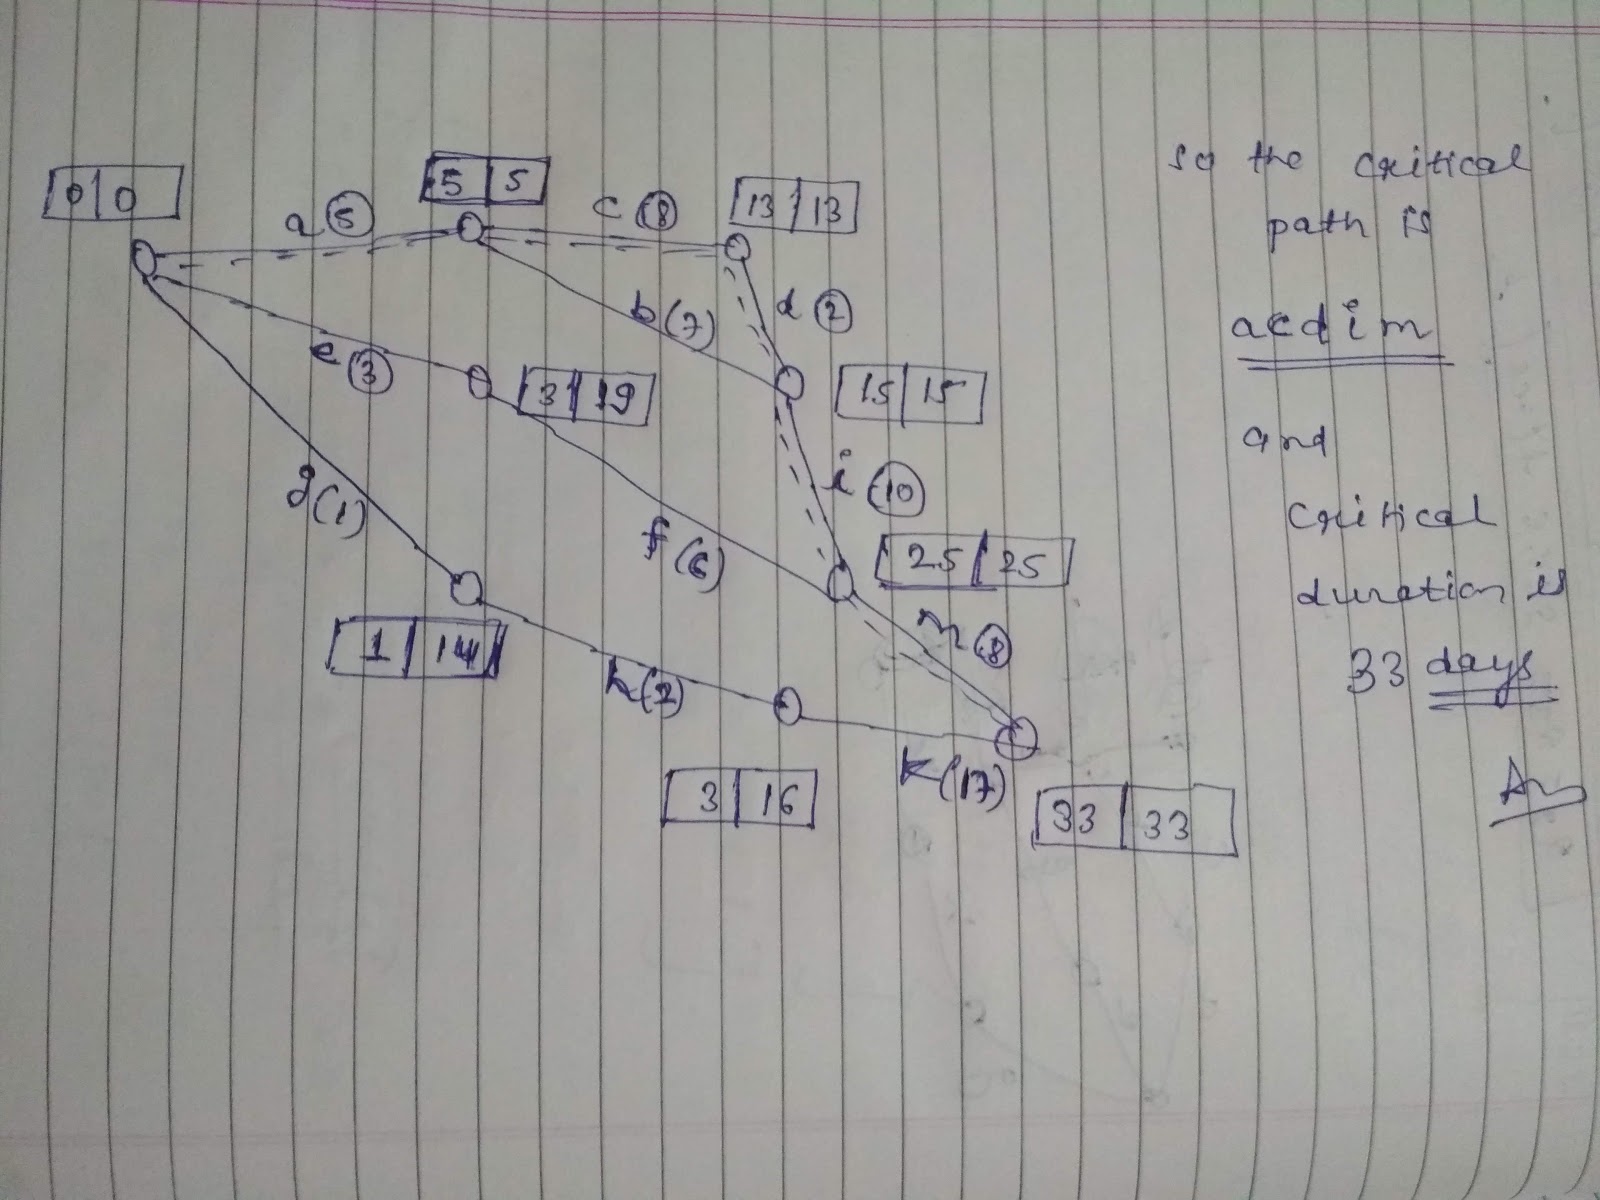 0 | 0
5 | 5
13 | 13
a (5)
c (8)
b (7)
d (2)
e (3)
3 | 19
15 | 15
g (1)
f (6)
i (10)
25 | 25
m (8)
1 | 14
h (2)
3 | 16
k (17)
33 | 33
so the critical
path is
acdim
and
critical
duration is
33 days